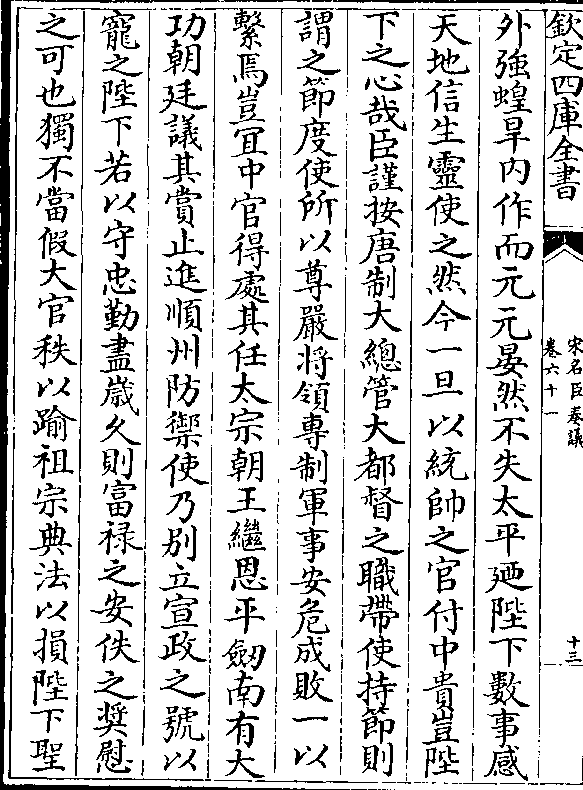 欽定四庫全書
宋名臣奏議
卷六十一
十三
外強蝗旱内作而元元晏然不失太平廼陛下數事感
天地信生靈使之然今一旦以統帥之官付中貴豈陛
下之心哉臣謹按唐制大總管大都督之職帶使持節則
謂之節度使所以尊嚴將領專制軍事安危成敗一以
繫焉豈宜中官得處其任太宗朝王繼恩平劒南有大
功朝廷議其賞止進順州防禦使乃别立宣政之號以
寵之陛下若以守忠勤盡歲久則富禄之安佚之奬慰
之可也獨不當假大官秩以踰祖宗典法以損陛下聖